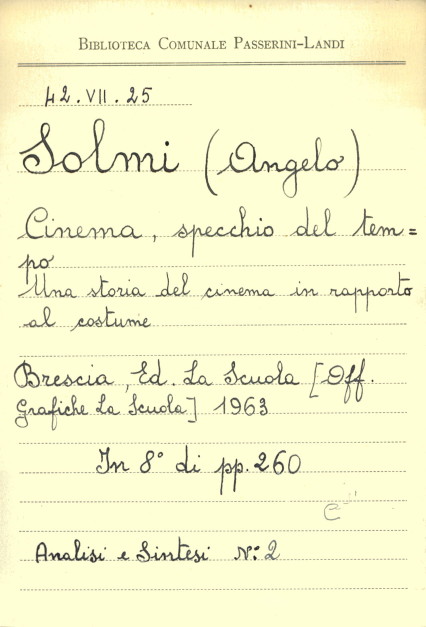 BIBLIOTECA COMUNALE PASSERINI-LANDI
42.VII.25
Solmi (Angelo)
Cinema, specchio del tem=
po
Una storia del cinema in rapporto
al costume
Brescia, Ed. La Scuola [Off.
Grafiche La Scuola] 1963
In 8° di pp. 260
C
Analisi e Sintesi N: 2